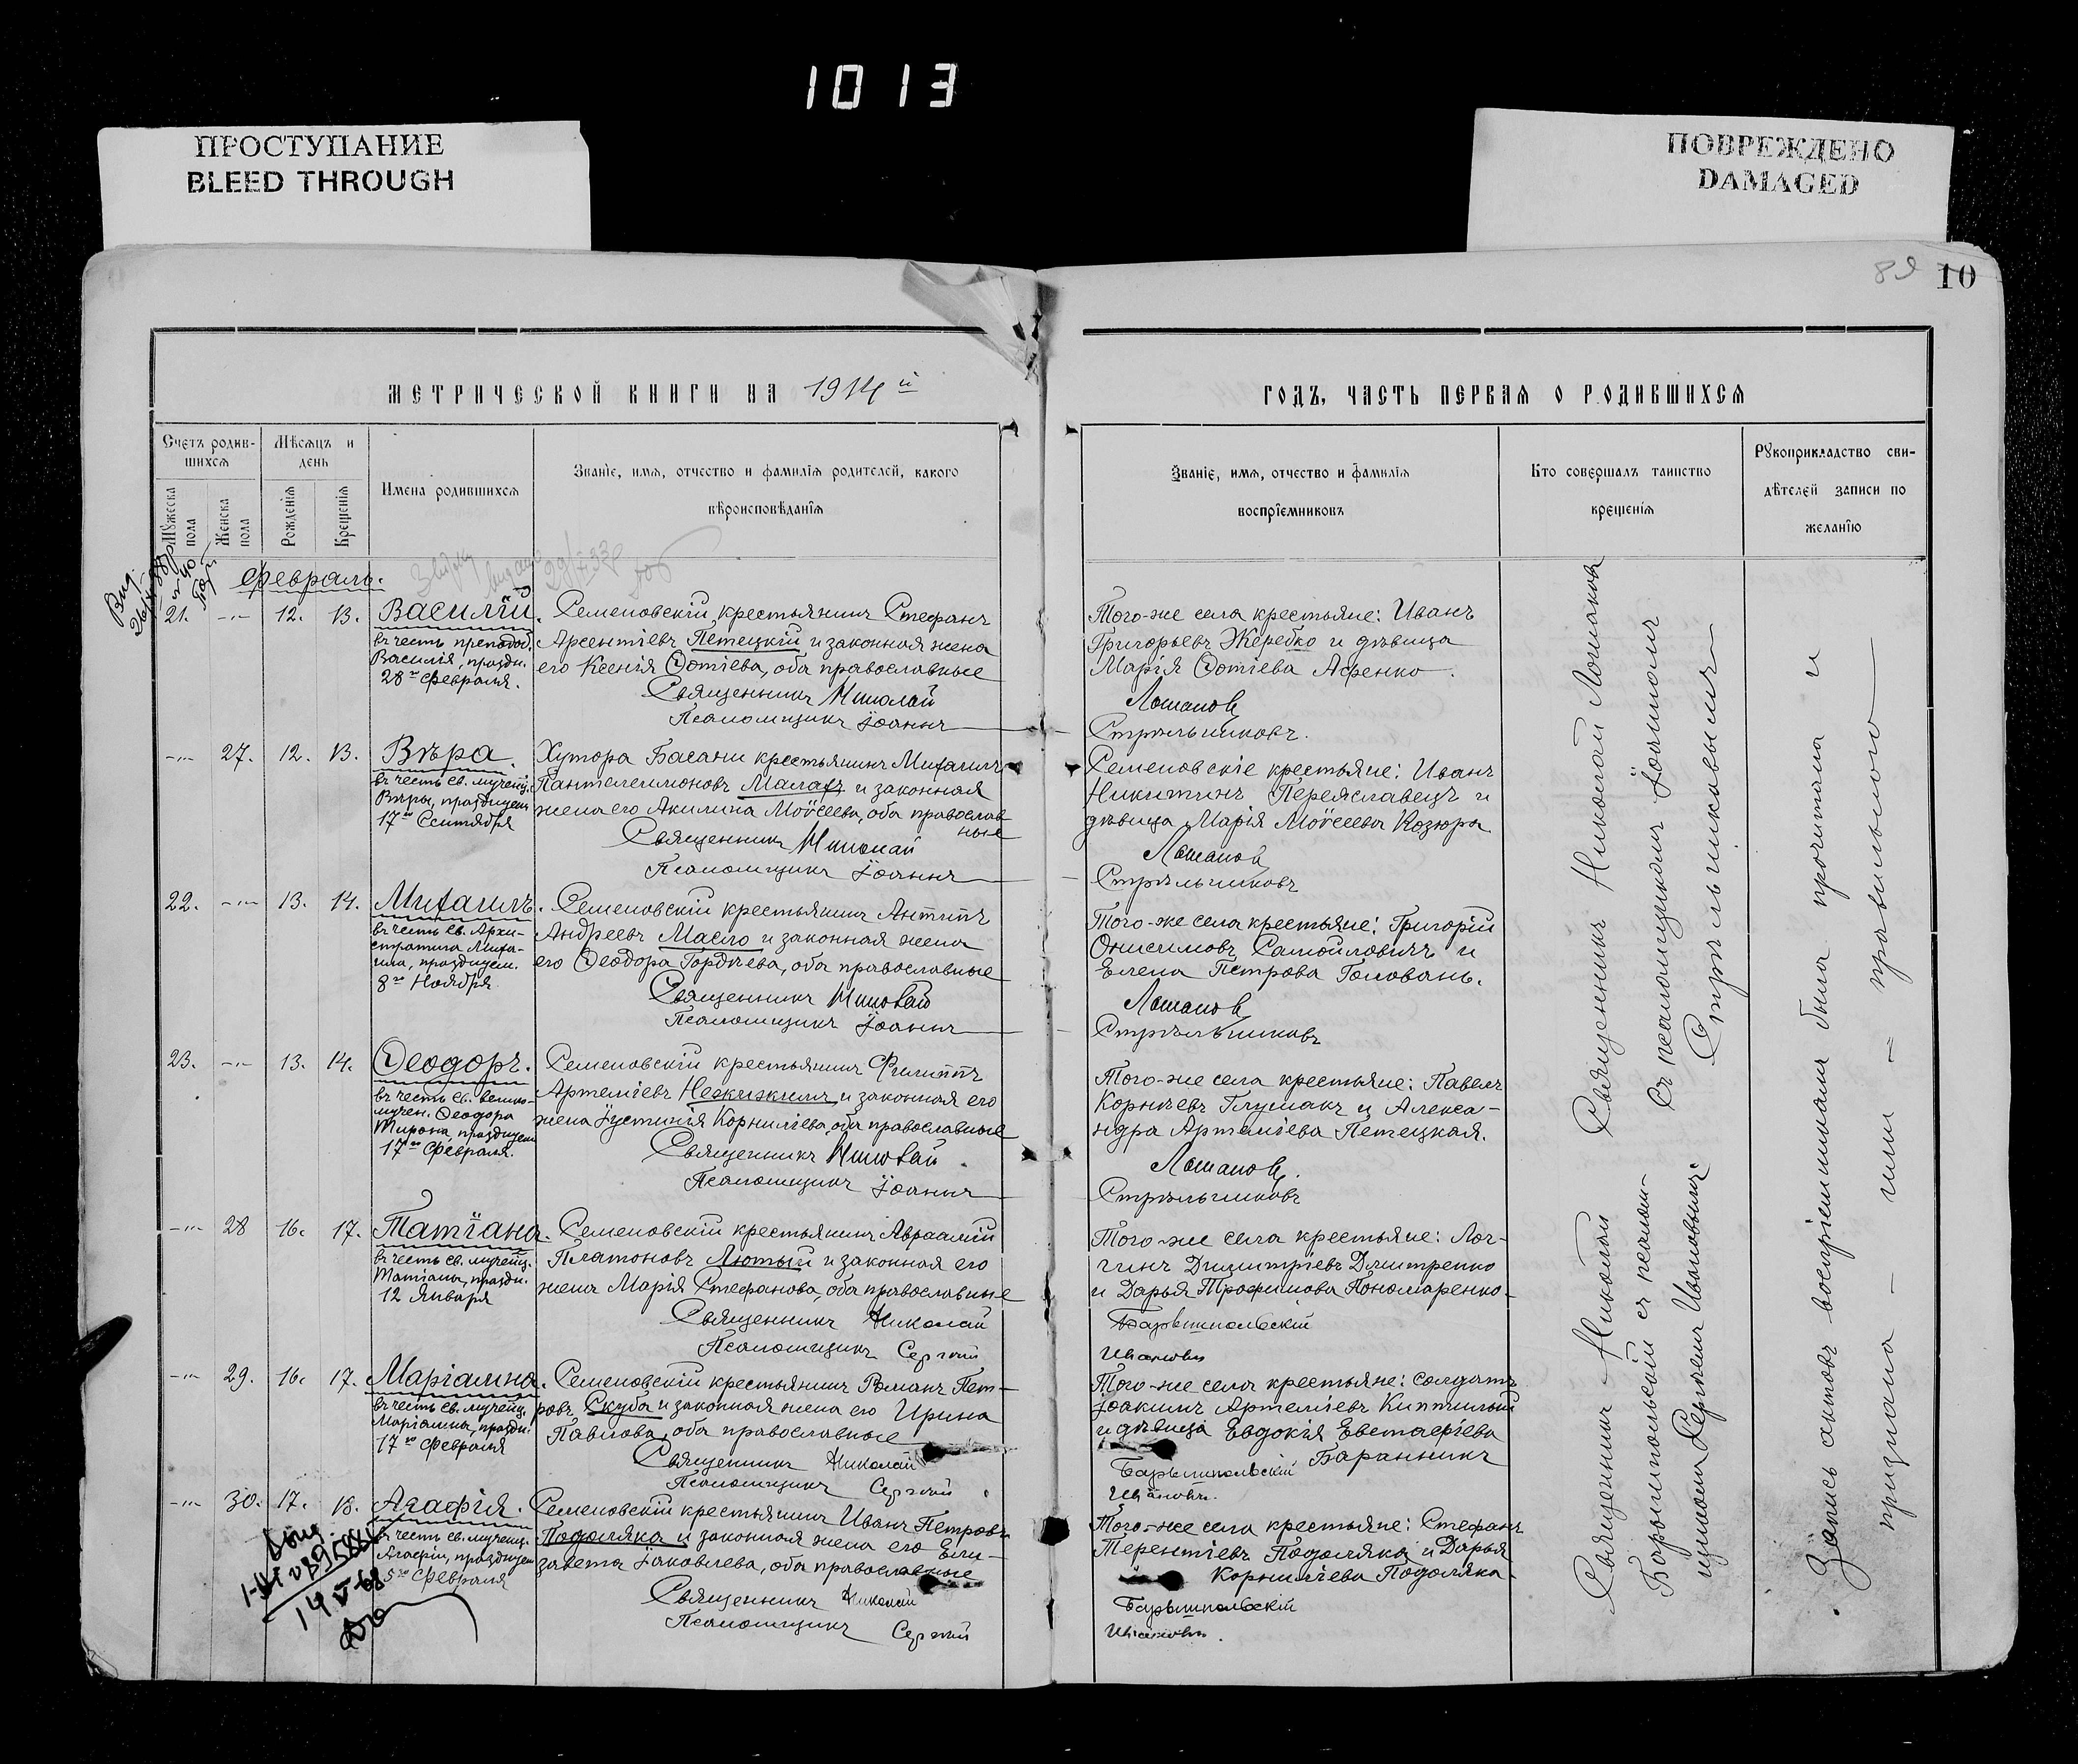 1013
ПРОСТУПАНИЕ
BLEED THROUGH
ПОВРЕЖДЕНО
DAMAGED
10
МЕТРИЧЕСКОЙ КНИГИ НА 1914 й
Счетъ родив-
шихся
Мужеска
пола
Женска
пола
Мѣсяцъ и
день
Рожденія
Крещенія
Имена родившихся
Званіе, имя, отчество и фамилія родителей, какого
вѣроисповѣданія
Февраль.
21. -"- 12. 13.
Василій.
въ честь преподоб.
Василія, праздн.
28го Февраля.
Семеновскій крестьянинъ Стефанъ
Арсентіевъ Петецкій и законная жена
его Ксенія Ѳотіева, оба православные
Священникъ Николай
Псаломщикъ Іоаннъ
-"- 27. 12. 13.
Вѣра.
въ честь св. мучениц.
Вѣры, празднуем.
17го Сентября
Хутора Басани крестьянинъ Михаилъ
Пантелеимоновъ Малай и законная
жена его Акилина Моѵсеева, оба православ
ные
Священникъ Николай
Псаломщикъ Іоаннъ
22. -"- 13. 14.
Михаилъ.
въ честь св. Архи-
стратига Миха-
ила, празднуем.
8го Ноября
Семеновскій крестьянинъ Антипъ
Андреевъ Масло и законная жена
его Ѳеодора Гордѣева, оба православные
Священникъ Николай
Псаломщикъ Іоаннъ
23. -"- 13. 14.
Ѳеодоръ.
въ честь св. велико-
мучен. Ѳеодора
Тирона, празднуем
17го Февраля.
Семеновскій крестьянинъ Филиппъ
Артеміевъ и законная его
жена Іустинія Корниліева, оба православные
Священникъ Николай
Псаломщикъ Іоаннъ
-"- 28 16. 17.
Татіана.
въ честь св. мучениц.
Татіаны, праздн.
12 Января
Семеновскій крестьянинъ Авраамій
Платоновъ Лютый и законная его
жена Марія Стефанова, оба православные
Священникъ Николай
Псаломщикъ Сергій
-"- 29. 16. 17.
Маріамна.
въ честь св. мучениц.
Маріамны, праздн.
17го Февраля
Семеновскій крестьянинъ Романъ Пет-
ровъ Скуба и законная жена его Ирина
Павлова, оба православные
Священникъ Николай
Псаломщикъ Сергій
-"- 30. 17. 18.
Агафія.
въ честь св. мучениц.
Агафіи, празднуем
5го Февраля
Семеновскій крестьянинъ Иванъ Петровъ
Подоляка и законная жена его Ели-
завета Іаковлева, оба православные
Священникъ Николай
Псаломщикъ Сергій
ГОДЪ, ЧАСТЬ ПЕРВАЯ О РОДИВШИХСЯ
Званіе, имя, отчество и фамилія
воспріемниковъ
Кто совершалъ таинство
крещенія
Рукоприкладство сви-
дѣтелей записи по
желанію
Того-же села крестьяне: Иванъ
Григорьевъ Жеребко и дѣвица
Марія Ѳотіева Асѣенко.
Лошаковъ
Стрѣльниковъ.
Семеновскіе крестьяне: Иванъ
Никитинъ Переяславецъ и
дѣвица Марія Моѵсеева Козюра
Лошаковъ
Стрѣльниковъ
Того-же села крестьяне: Григорій
Онисимовъ Самойловичъ и
Елена Петрова Головань.
Лошаковъ
Стрѣльниковъ
Того-же села крестьяне: Павелъ
Корнѣевъ Глушакъ и Алекса-
ндра Артеміева Петецкая.
Лошаковъ.
Стрѣльниковъ
Того-же села крестьяне: Лог-
гинъ Димитріевъ Дмитренко
и Дарья Трофимова Пономаренко.
Барышпольскій
Ивановъ
Того-же села крестьяне: солдатъ
Іоакимъ Артеміевъ Киптилый
и дѣвица Евдокія Евстафіева
Баранникъ
Барышпольскій
Ивановъ.
Того-же села крестьяне: Стефанъ
Терентіевъ Подоляка и Дарья
Корниліева Подоляка.
Барышпольскій
Ивановъ.
Священникъ Николай Лошаковъ
съ псаломщикомъ Іоанномъ
Стрѣльниковымъ
Священникъ Николай
Барышпольскій съ псалом-
щикомъ Сергіемъ Ивановымъ.
Запись актовъ воспріемниками была прочитана и
признана ими правильною